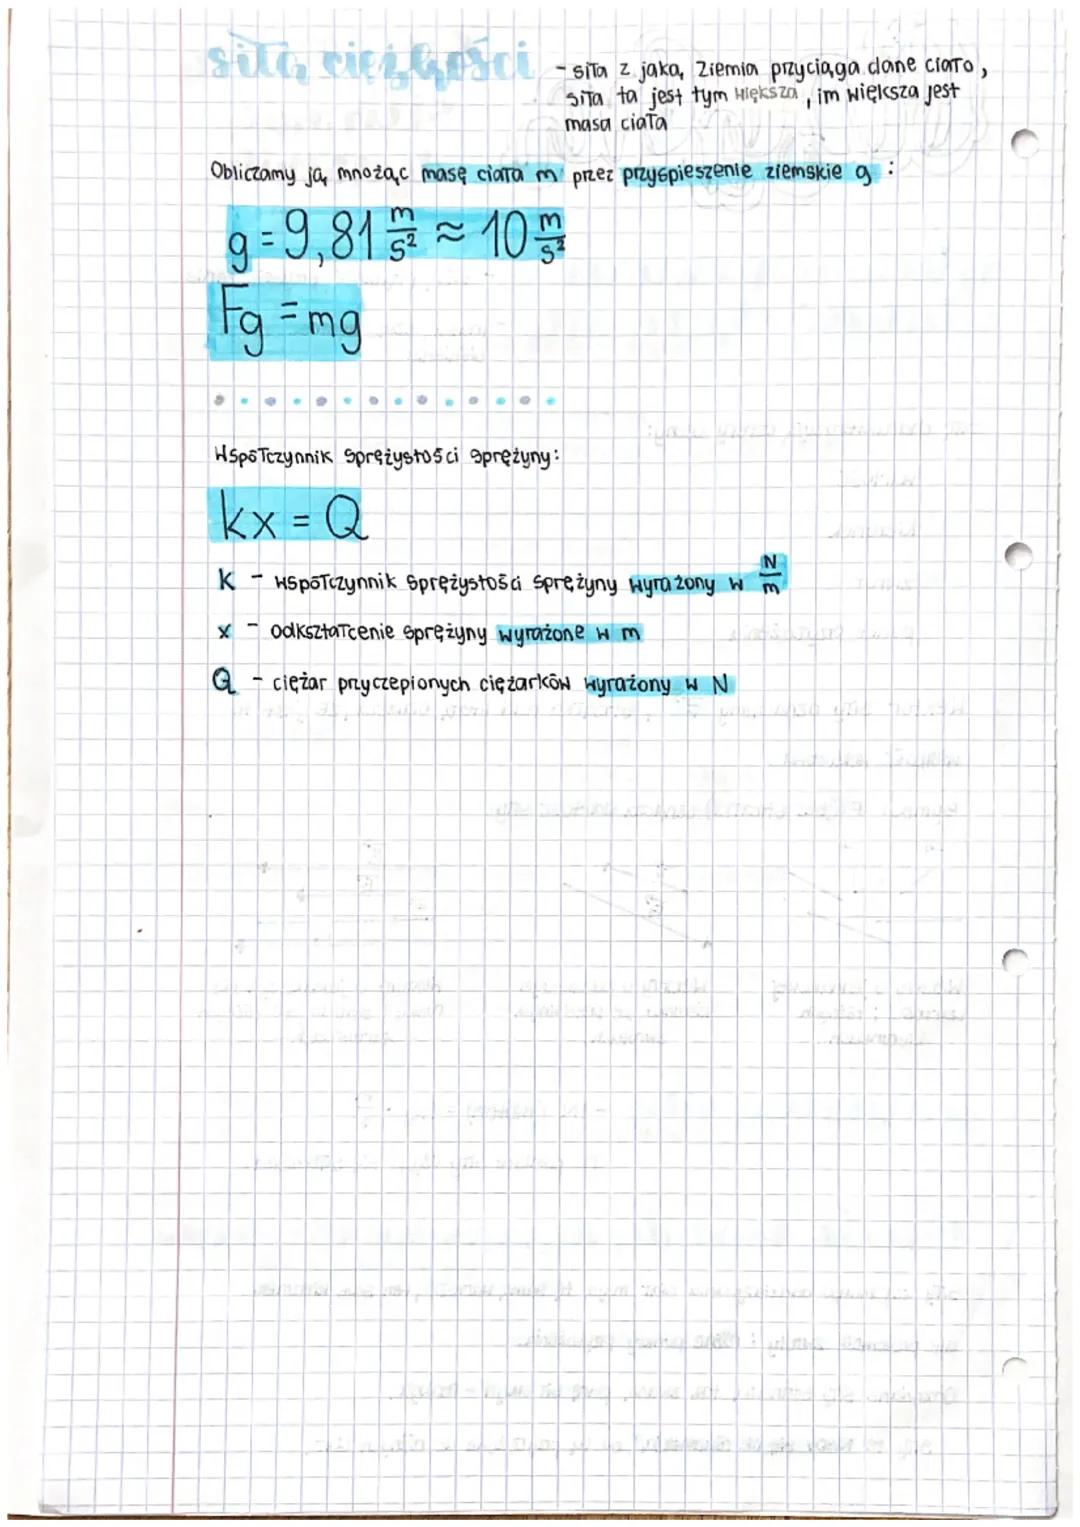 siła ciężkości - siła z jaką Ziemia przyciąga dane ciało,
siła ta jest tym większa, im większa jest
masa ciała
Obliczamy ją mnożąc masę ciała m przez przyspieszenie ziemskie g :
g = 9,81 m/s² ≈ 10 m/s²
Fg = mg
Współczynnik sprężystości sprężyny:
kx = Q
K - współczynnik sprężystości sprężyny wyrażony w N/m
x - odkształcenie sprężyny wyrażone w m
Q - ciężar przyczepionych ciężarków wyrażony w N